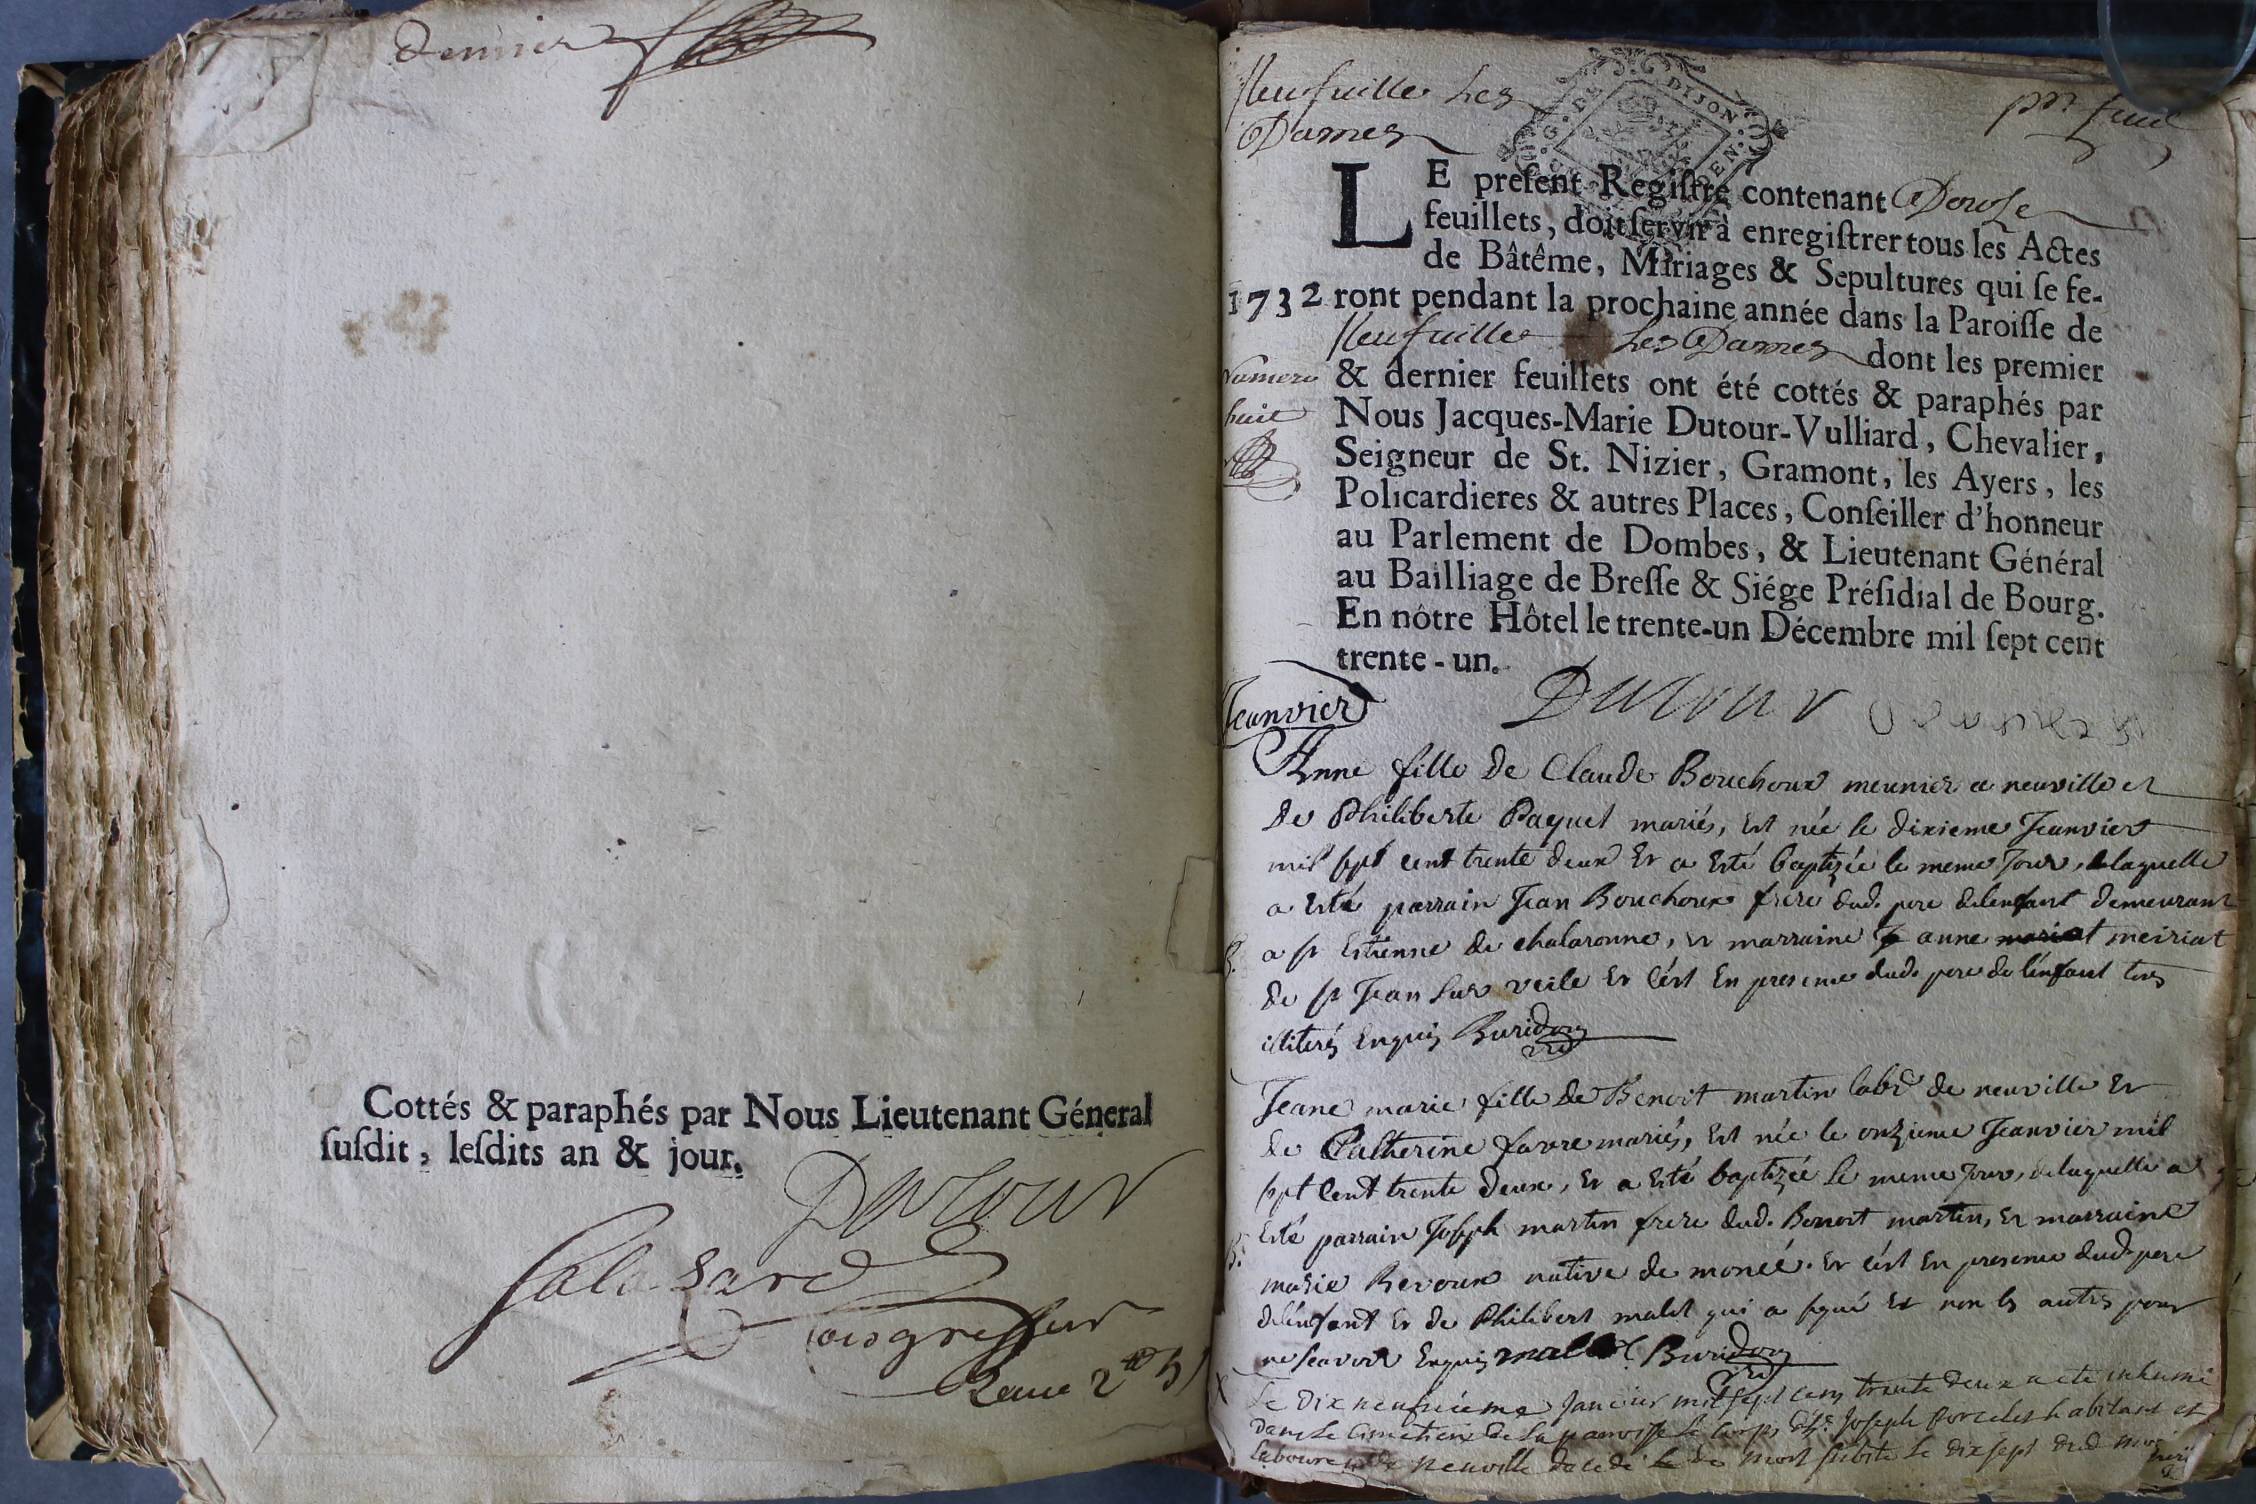 Dernier
Cottés & paraphés par Nous Lieutenant Géneral
ſuſdit, leſdits an & jour.
Dutour
Neufuille Les
Dames
DIJON
LE preſent Regiſtre contenant Douſe
feuillets, doit ſervir à enregiſtrer tous les Actes
de Bâtême, Mariages & Sepultures qui ſe fe-
1732 ront pendant la prochaine année dans la Paroiſſe de
Neufuille Les Dames dont les premier
Numero & dernier feuillets ont été cottés & paraphés par
huit Nous Jacques-Marie Dutour-Vulliard, Chevalier,
Seigneur de St. Nizier, Gramont, les Ayers, les
Policardieres & autres Places, Conſeiller d'honneur
au Parlement de Dombes, & Lieutenant Général
au Bailliage de Breſſe & Siége Préſidial de Bourg.
En nôtre Hôtel le trente-un Décembre mil ſept cent
trente-un.
Dutour
Jeanvier
Anne fille de Claude Bouchoux meunier a neuville et
de Philiberte Paquet mariés, est née le dixieme Jeanvier
mil sept cent trente deux et a esté baptizée le meme jour, delaquelle
a esté parrain Jean Bouchoux frere dud. pere delenfant demeurant
B. a st Estienne de chalaronne, et marraine anne meiriat
de st Jean sur veile et c'est en presence dud. pere de l'enfant tous
illiterés enquis Buridon
Jeane marie fille de Benoit martin labr de neuville et
de Catherine favre mariés, est née le onzieme Jeanvier mil
sept cent trente deux, et a esté baptizée le meme jour, delaquelle a
esté parrain Joseph martin frere dud. Benoit martin, et marraine
B. marie Revoux native de moncé. et c'est en presence dud. pere
delenfant et de Philibert malet qui a signé et non les autres pour
ne scavoir enquis malet Buridon
Le dix neufvieme Janvier mil sept cens trente deux a eté inhumé
dans le cimetiere de la paroisse le corps de Joseph Porcelet habitant et
laboureur de neuville décédé de mort subite le dix sept dud mois